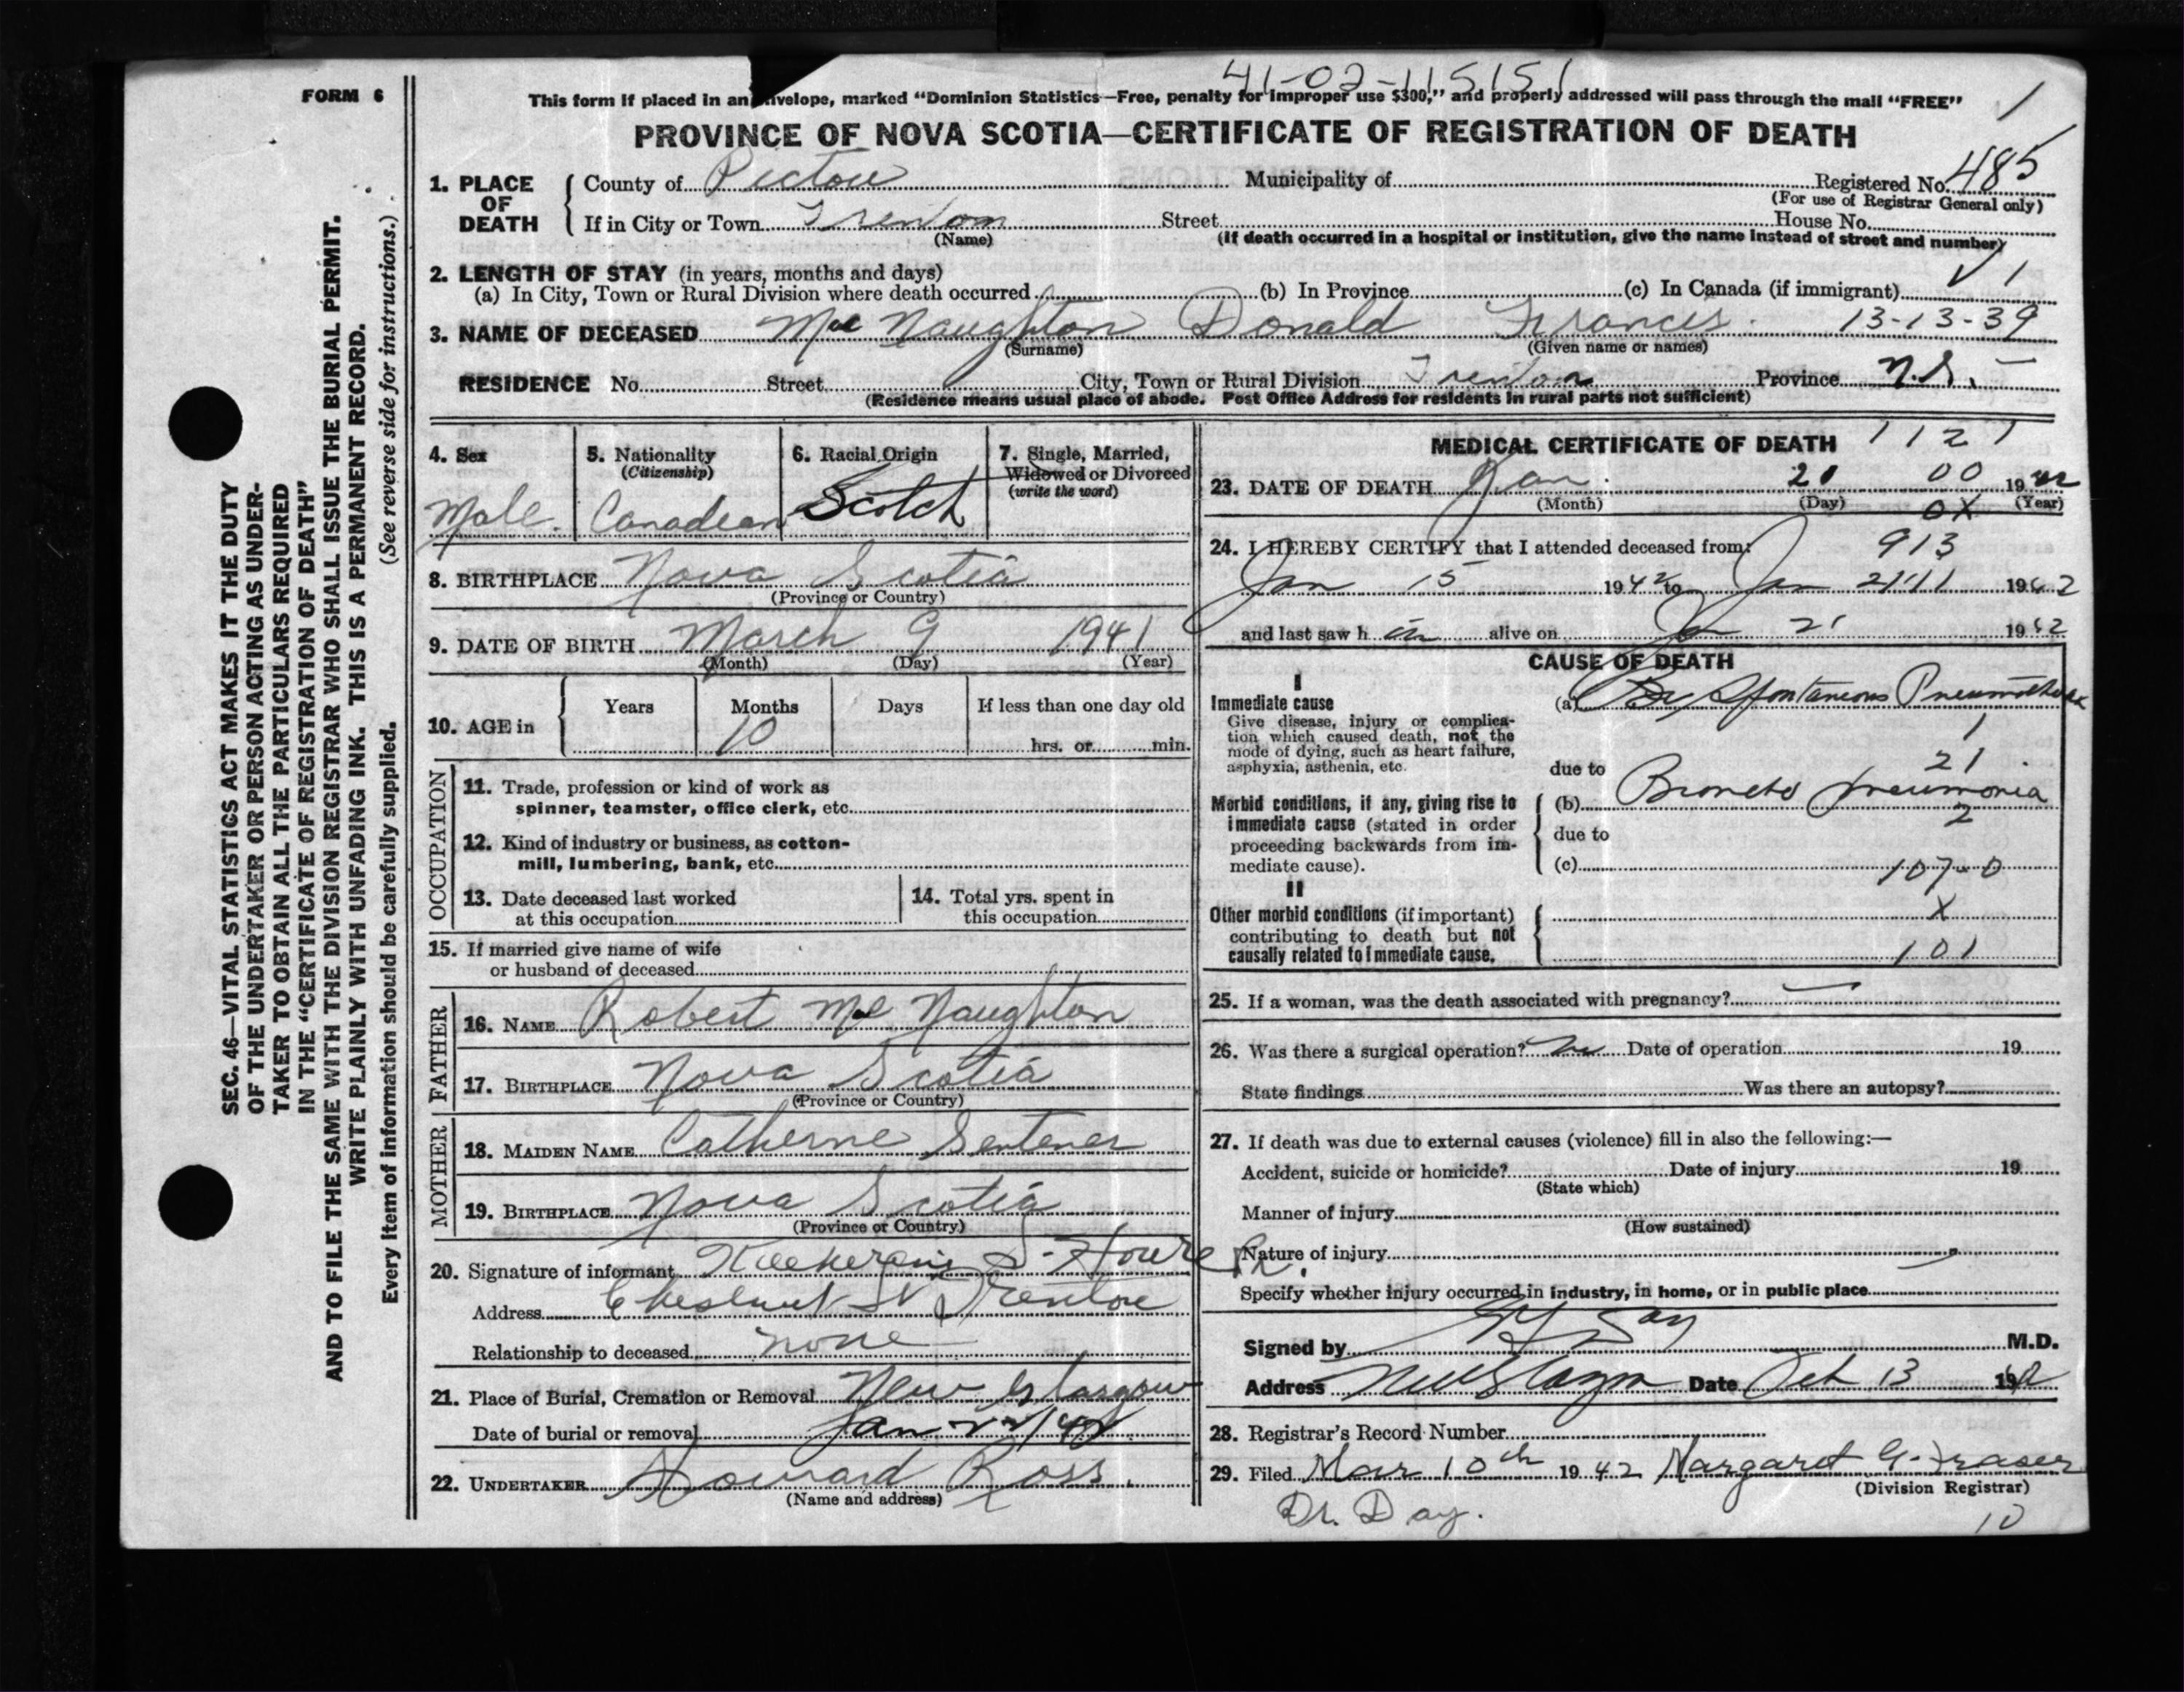 FORM 6
41-02-115151
This form if placed in an envelope, marked "Dominion Statistics—Free, penalty for improper use $300," and properly addressed will pass through the mail "FREE"
1
PROVINCE OF NOVA SCOTIA—CERTIFICATE OF REGISTRATION OF DEATH
1. PLACE OF DEATH
County of Pictou Municipality of Registered No. 485
(For use of Registrar General only)
If in City or Town Trenton Street House No.
(Name) (If death occurred in a hospital or institution, give the name instead of street and number)
2. LENGTH OF STAY (in years, months and days)
(a) In City, Town or Rural Division where death occurred (b) In Province (c) In Canada (if immigrant) 1
3. NAME OF DECEASED MacNaughton Donald Francis 13-13-39
(Surname) (Given name or names)
RESIDENCE No. Street City, Town or Rural Division Trenton Province N.S.
(Residence means usual place of abode. Post Office Address for residents in rural parts not sufficient)
4. Sex
Male.
5. Nationality
(Citizenship)
Canadian
6. Racial Origin
Scotch
7. Single, Married,
Widowed or Divorced
(write the word)
8. BIRTHPLACE Nova Scotia
(Province or Country)
9. DATE OF BIRTH March 9 1941
(Month) (Day) (Year)
10. AGE in
Years Months Days If less than one day old
10 hrs. or min.
OCCUPATION
11. Trade, profession or kind of work as
spinner, teamster, office clerk, etc.
12. Kind of industry or business, as cotton-
mill, lumbering, bank, etc.
13. Date deceased last worked
at this occupation
14. Total yrs. spent in
this occupation
15. If married give name of wife
or husband of deceased
FATHER
16. NAME Robert MacNaughton
17. BIRTHPLACE Nova Scotia
(Province or Country)
MOTHER
18. MAIDEN NAME Catherine
19. BIRTHPLACE Nova Scotia
(Province or Country)
20. Signature of informant
Address Chestnut St Trenton
Relationship to deceased none
21. Place of Burial, Cremation or Removal New Glasgow
Date of burial or removal Jan 22/42
22. UNDERTAKER Howard Ross.
(Name and address)
MEDICAL CERTIFICATE OF DEATH 1121
23. DATE OF DEATH Jan. 21 00 1942
(Month) (Day) 0X (Year)
24. I HEREBY CERTIFY that I attended deceased from: 913
Jan 15 1942 to Jan 21 1942
and last saw h im alive on Jan 21 1942
CAUSE OF DEATH
I
Immediate cause
Give disease, injury or complica-
tion which caused death, not the
mode of dying, such as heart failure,
asphyxia, asthenia, etc.
(a) Spontaneous Pneumothorax
1
21
due to
Morbid conditions, if any, giving rise to
immediate cause (stated in order
proceeding backwards from im-
mediate cause).
(b) Broncho pneumonia
2
due to
(c) 107-0
II
Other morbid conditions (if important)
contributing to death but not
causally related to immediate cause.
X
101
25. If a woman, was the death associated with pregnancy? —
26. Was there a surgical operation? no Date of operation 19
State findings Was there an autopsy?
27. If death was due to external causes (violence) fill in also the following:—
Accident, suicide or homicide? Date of injury 19
(State which)
Manner of injury
(How sustained)
Nature of injury
Specify whether injury occurred in industry, in home, or in public place
Signed by Day M.D.
Address New Glasgow Date Feb 13 1942
28. Registrar's Record Number
29. Filed Mar 10th 1942 Margaret G. Fraser
(Division Registrar)
Dr. Day.
10
SEC. 46—VITAL STATISTICS ACT MAKES IT THE DUTY
OF THE UNDERTAKER OR PERSON ACTING AS UNDER-
TAKER TO OBTAIN ALL THE PARTICULARS REQUIRED
IN THE "CERTIFICATE OF REGISTRATION OF DEATH"
AND TO FILE THE SAME WITH THE DIVISION REGISTRAR WHO SHALL ISSUE THE BURIAL PERMIT.
WRITE PLAINLY WITH UNFADING INK. THIS IS A PERMANENT RECORD.
Every item of information should be carefully supplied. (See reverse side for instructions.)